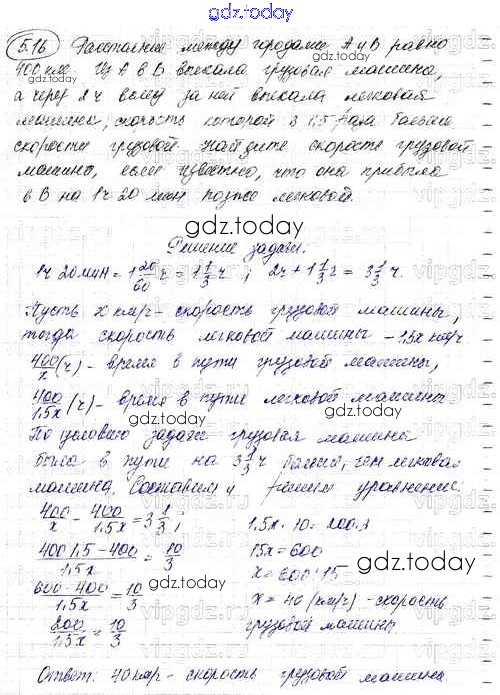 gdz.today
5.16 Расстояние между городами А и В равно
400 км. Из А в В выехала грузовая машина,
gdz.today gdz.today
а через 2 ч вслед за ней выехала легковая
машина, скорость которой в 1,5 раза больше
скорости грузовой. Найдите скорость грузовой
машины, если известно, что она прибыла
в В на 1ч 20 мин позже легковой.
gdz.today
Решение задачи.
1ч 20 мин = 1 20/60 ч = 1 1/3 ч ; 2ч + 1 1/3 ч = 3 1/3 ч.
Пусть x км/ч - скорость грузовой машины,
тогда скорость легковой машины - 1,5x км/ч
400/x (ч) - время в пути грузовой машины,
gdz.today
400/1,5x (ч) - время в пути легковой машины
gdz.today
По условию задачи грузовая машина
была в пути на 3 1/3 ч больше, чем легковая
машина. Составим и решим уравнение:
gdz.today
400/x - 400/1,5x = 3 1/3 ;
400·1,5-400/1,5x = 10/3
600-400/1,5x = 10/3
200/1,5x = 10/3
1,5x · 10 = 200·3
15x = 600
x = 600:15
gdz.today
x = 40 (км/ч) - скорость
грузовой машины.
gdz.today
Ответ: 40 км/ч - скорость грузовой машины